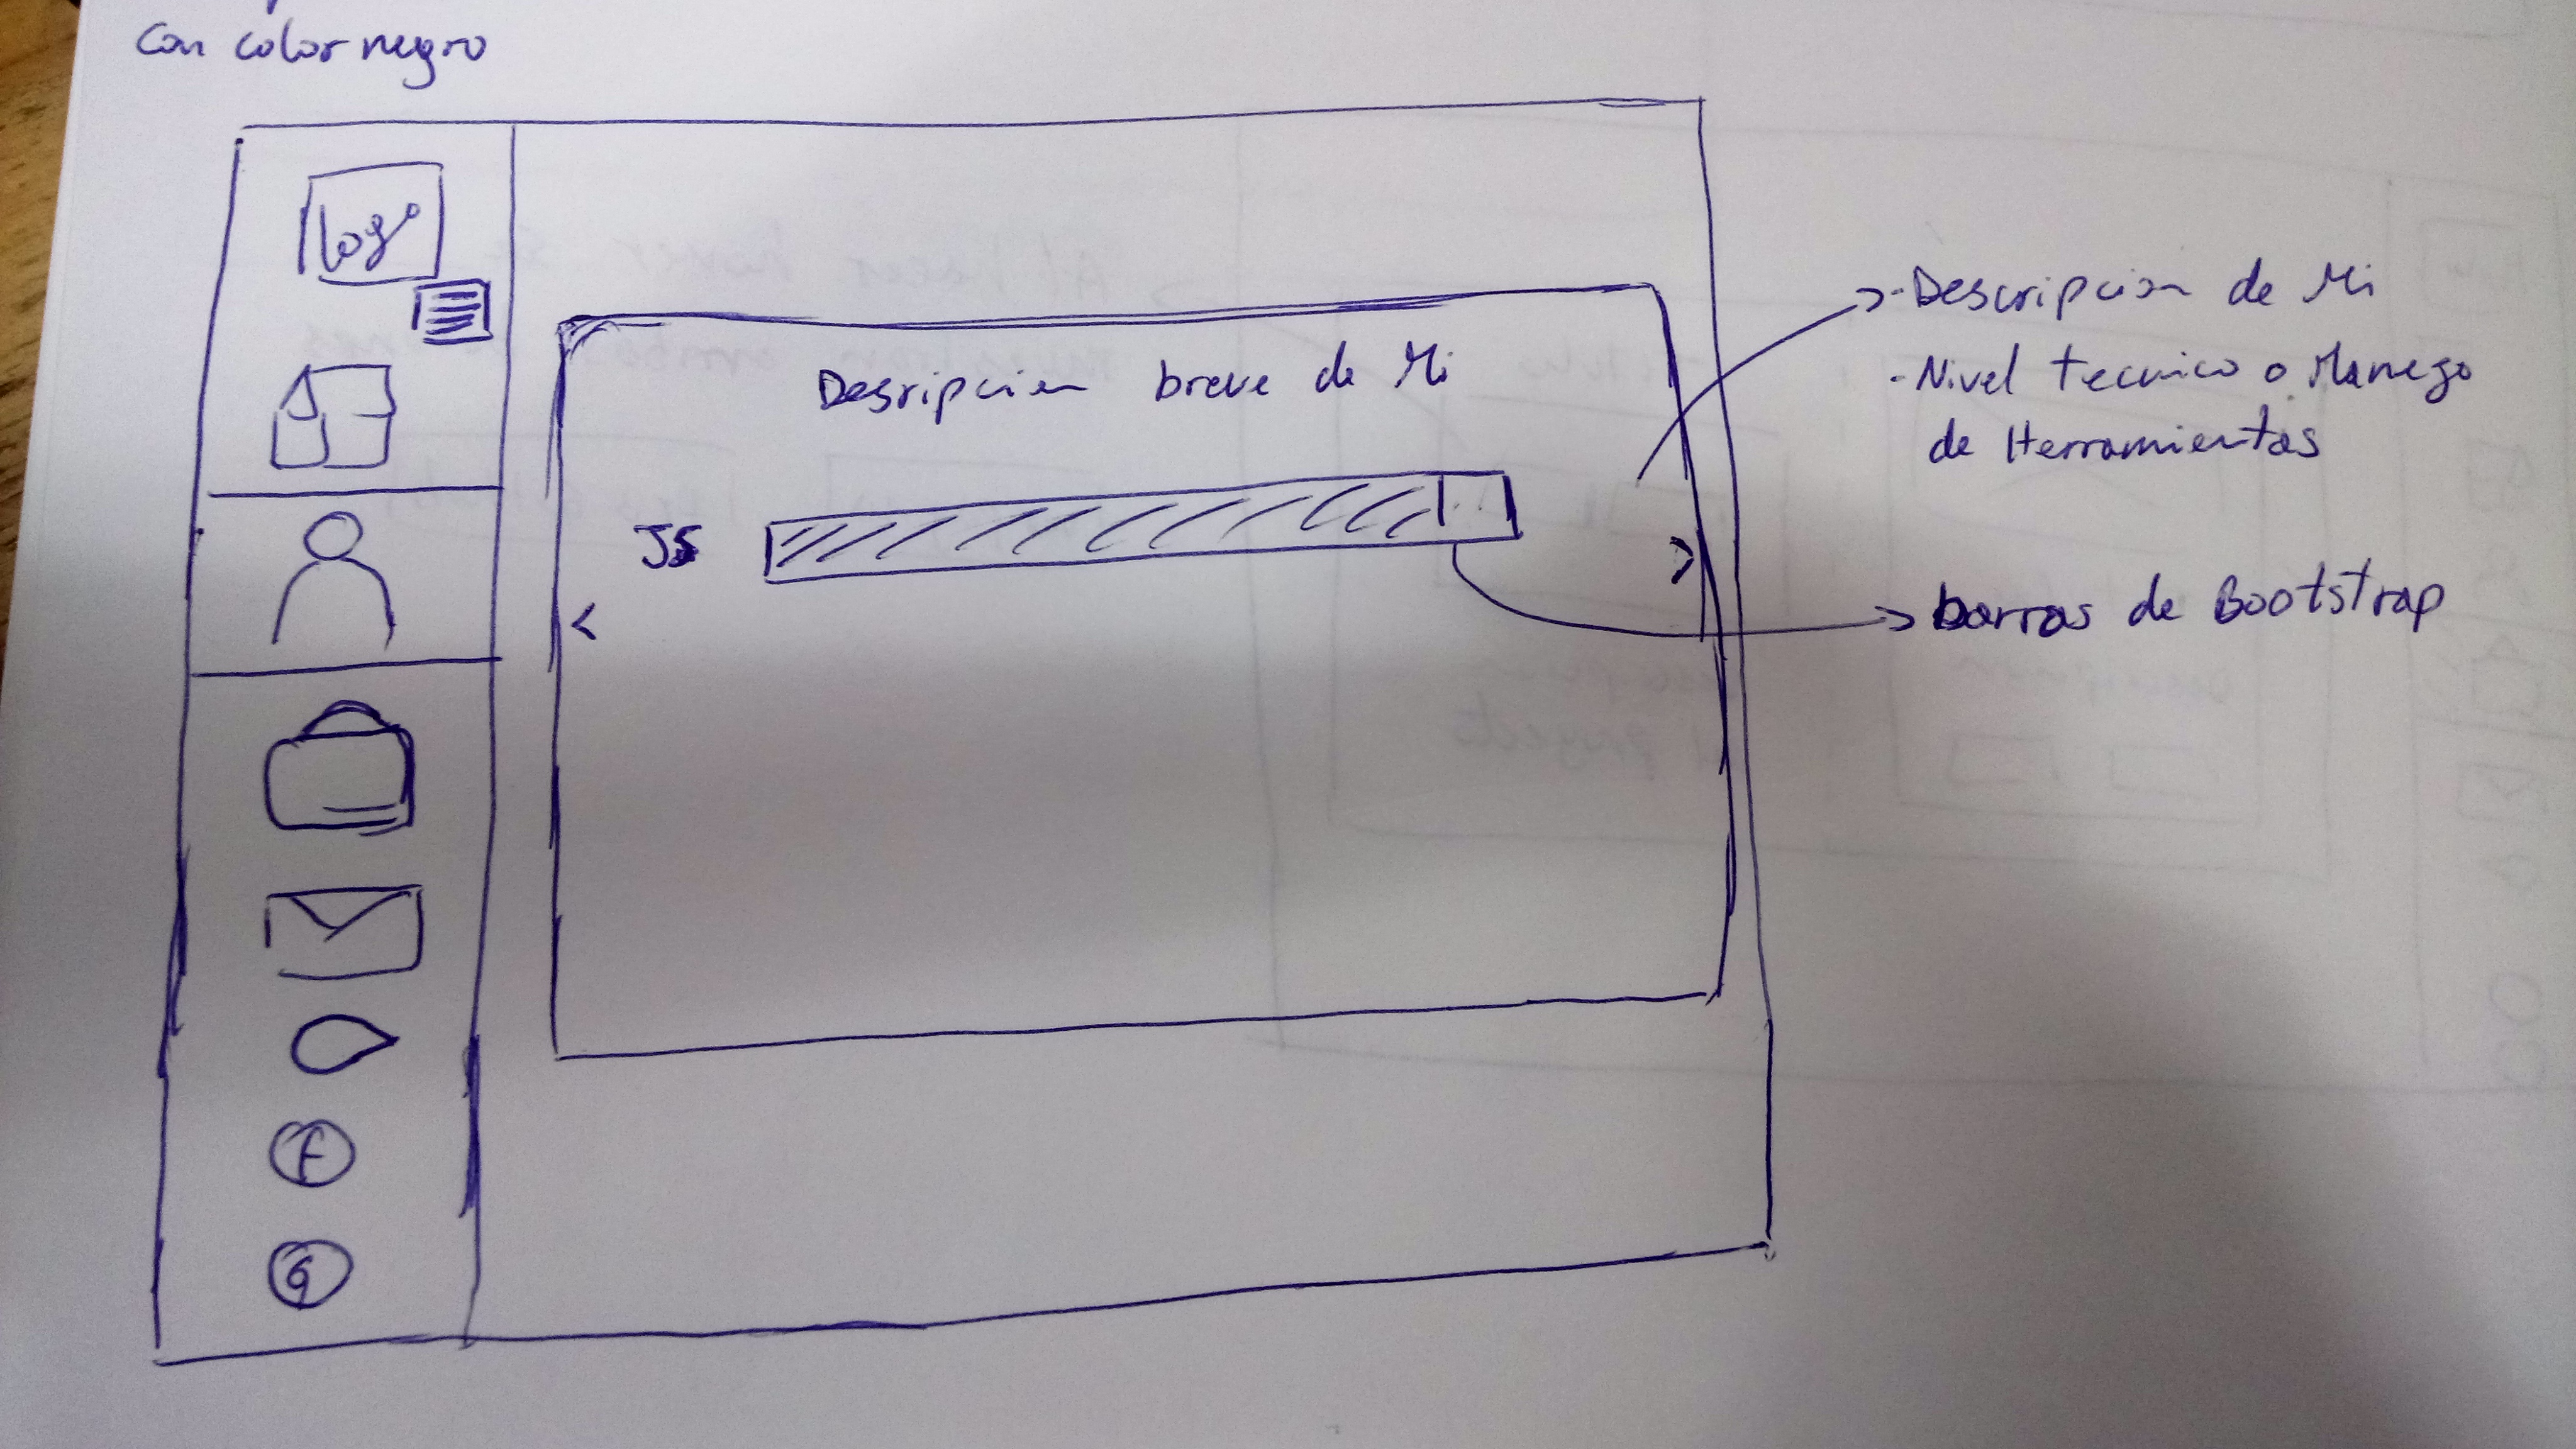 con color negro
logo
Js
Desripcion breve de Mi
- Descripcion de Mi
- Nivel tecnico o Manejo
de Herramientas
barras de bootstrap
f
G